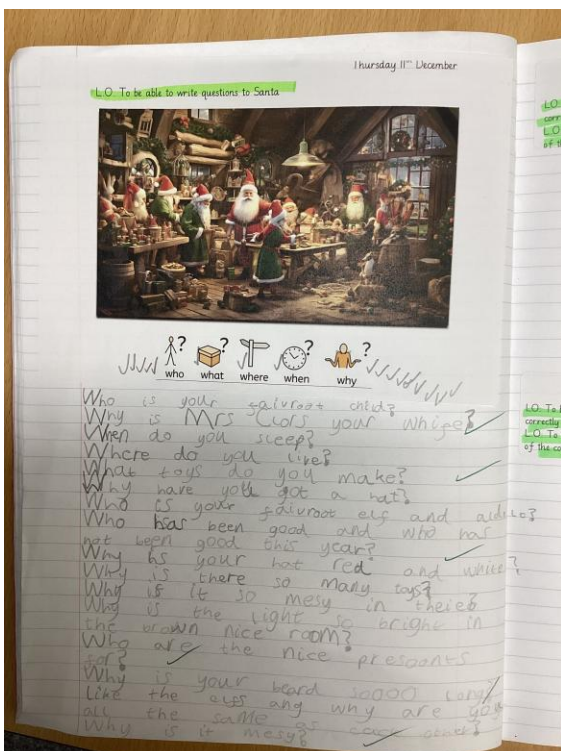 Thursday 11th December
L.O. To be able to write questions to Santa
L.O.
corre
L.O.
of th
? ? ? ? ?
who what where when why
Who is your faivroot child?
Why is Mrs Clors your whife?
When do you sleep?
Where do you live?
What toys do you make?
Why have you got a hat?
Who is your faivroot elf and
Who has been good and who has
not been good this year?
Why is your hat red and white?
Why is there so many toys?
Why is it so mesy in
Why is the light so bright in
the brown nice room?
Who are the nice presoants
for?
Why is your beard soooo long
like the elfs and why are you
all the same as other?
Why is it mesy?
L.O. To
correctly
L.O. To
of the co